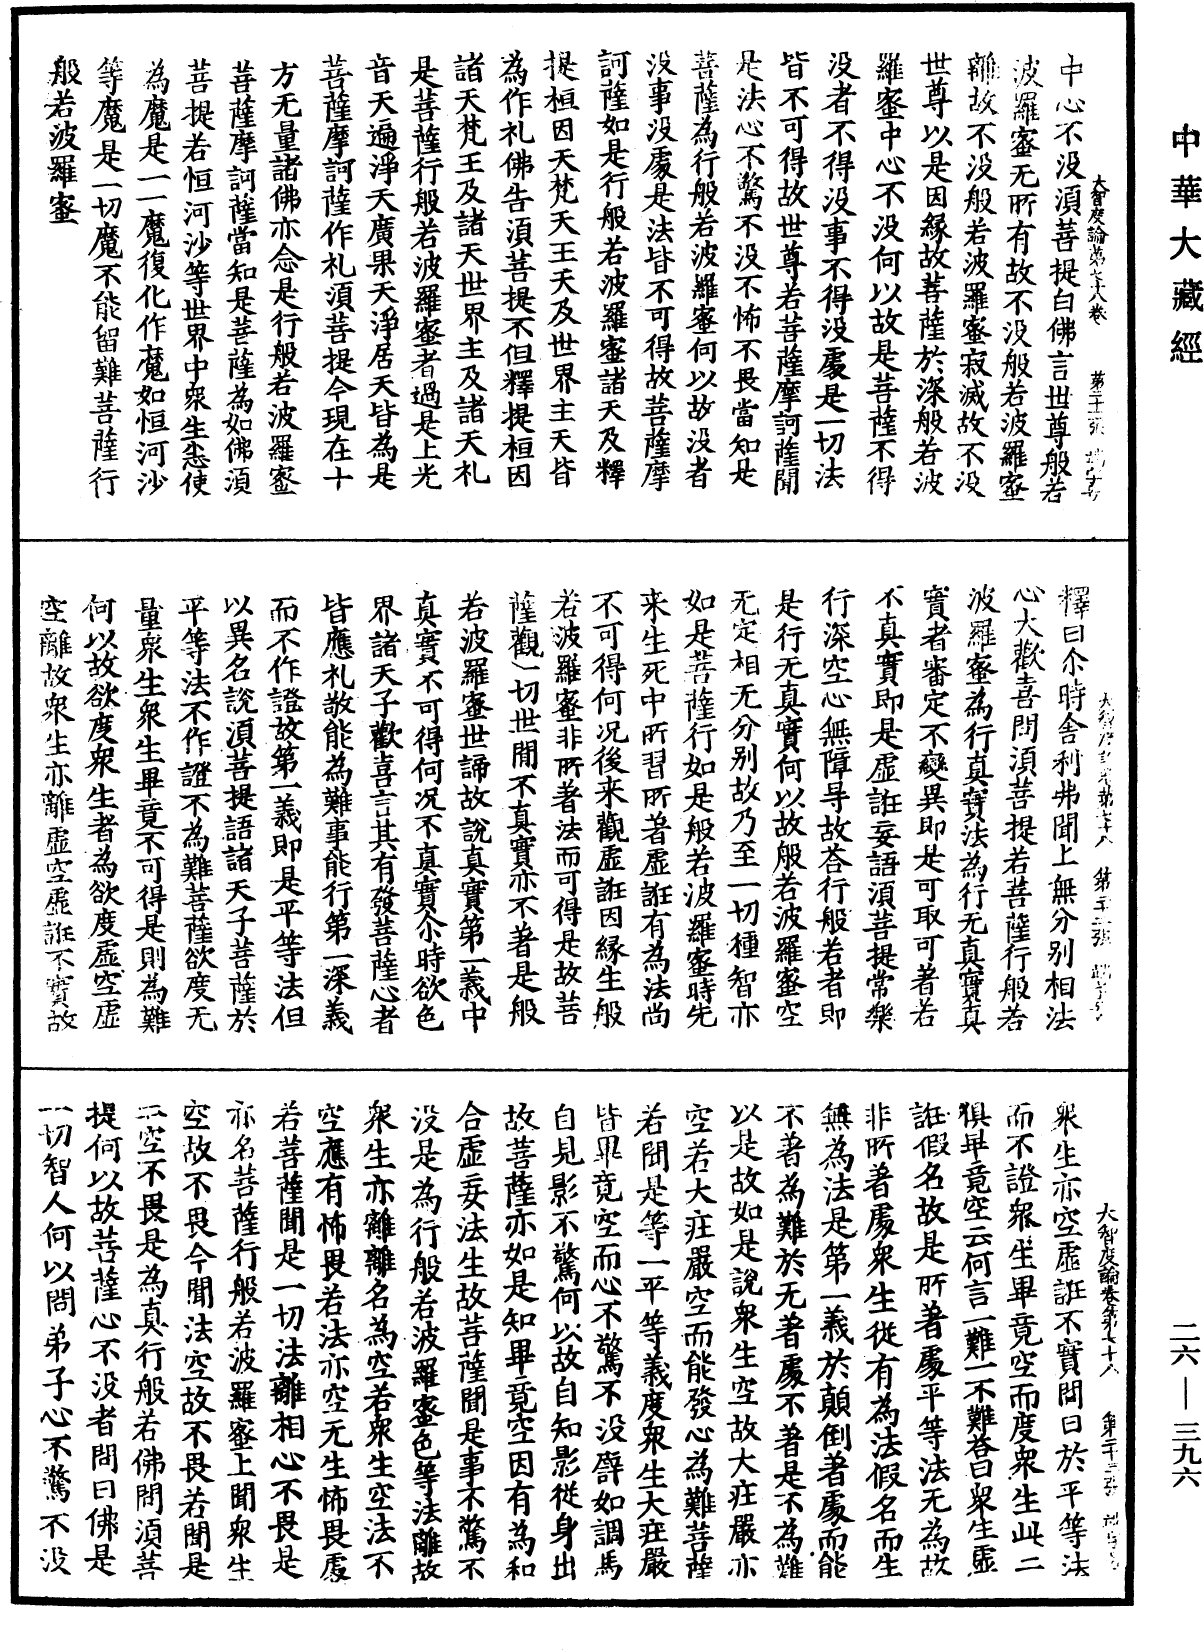 中華大藏經
大智度論第七十八卷
中心不没須菩提白佛言世尊般若
波羅蜜无所有故不没般若波羅蜜
離故不没般若波羅蜜寂滅故不没
世尊以是因緣故菩薩於深般若波
羅蜜中心不没何以故是菩薩不得
没者不得没事不得没處是一切法
皆不可得故世尊若菩薩摩訶薩聞
是法心不驚不没不怖不畏當知是
菩薩為行般若波羅蜜何以故没者
没事没處是法皆不可得故菩薩摩
訶薩如是行般若波羅蜜諸天及釋
提桓因天梵天王天及世界主天皆
為作礼佛告須菩提不但釋提桓因
諸天梵王及諸天世界主及諸天礼
是菩薩行般若波羅蜜者過是上光
音天遍淨天廣果天淨居天皆為是
菩薩摩訶薩作礼須菩提今現在十
方无量諸佛亦念是行般若波羅蜜
菩薩摩訶薩當知是菩薩為如佛須
菩提若恒河沙等世界中衆生悉使
為魔是一一魔復化作魔如恒河沙
等魔是一切魔不能留難菩薩行
般若波羅蜜
釋曰尒時舍利弗聞上無分别相法
心大歡喜問須菩提若菩薩行般若
波羅蜜為行真實法為行无真實真
實者審定不變異即是可取可著若
不真實即是虛誑妄語須菩提常樂
行深空心無障㝵故荅行般若者即
是行无真實何以故般若波羅蜜空
无定相无分别故乃至一切種智亦
如是菩薩行如是般若波羅蜜時先
来生死中所習所著虛誑有為法尚
不可得何况後来觀虛誑因緣生般
若波羅蜜非所著法而可得是故菩
薩觀一切世間不真實亦不著是般
若波羅蜜世諦故說真實第一義中
真實不可得何况不真實尒時欲色
界諸天子歡喜言其有發菩薩心者
皆應礼敬能為難事能行第一深義
而不作證故第一義即是平等法但
以異名說須菩提語諸天子菩薩於
平等法不作證不為難菩薩欲度无
量衆生衆生畢竟不可得是則為難
何以故欲度衆生者為欲度虛空虛
空離故衆生亦離虛空虛誑不實故
大智度論卷第七十八
衆生亦空虛誑不實問曰於平等法
而不證衆生畢竟空而度衆生此二
俱畢竟空云何言一難一不難荅曰衆生虛
誑假名故是所著處平等法无為故
非所著處衆生從有為法假名而生
無為法是第一義於顛倒著處而能
不著為難於无著處不著是不為難
以是故如是說衆生空故大莊嚴亦
空若大莊嚴空而能發心為難菩薩
若聞是等一平等義度衆生大莊嚴
皆畢竟空而心不驚不没譬如調馬
自見影不驚何以故自知影從身出
故菩薩亦如是知畢竟空因有為和
合虛妄法生故菩薩聞是事不驚不
没是為行般若波羅蜜色等法離故
衆生亦離離名為空若衆生空法不
空應有怖畏若法亦空无生怖畏處
若菩薩聞是一切法離相心不畏是
亦名菩薩行般若波羅蜜上聞衆生
空故不畏今聞法空故不畏若聞是
二空不畏是為真行般若佛問須菩
提何以故菩薩心不没者問曰佛是
一切智人何以問弟子心不驚不没
二六—三九六